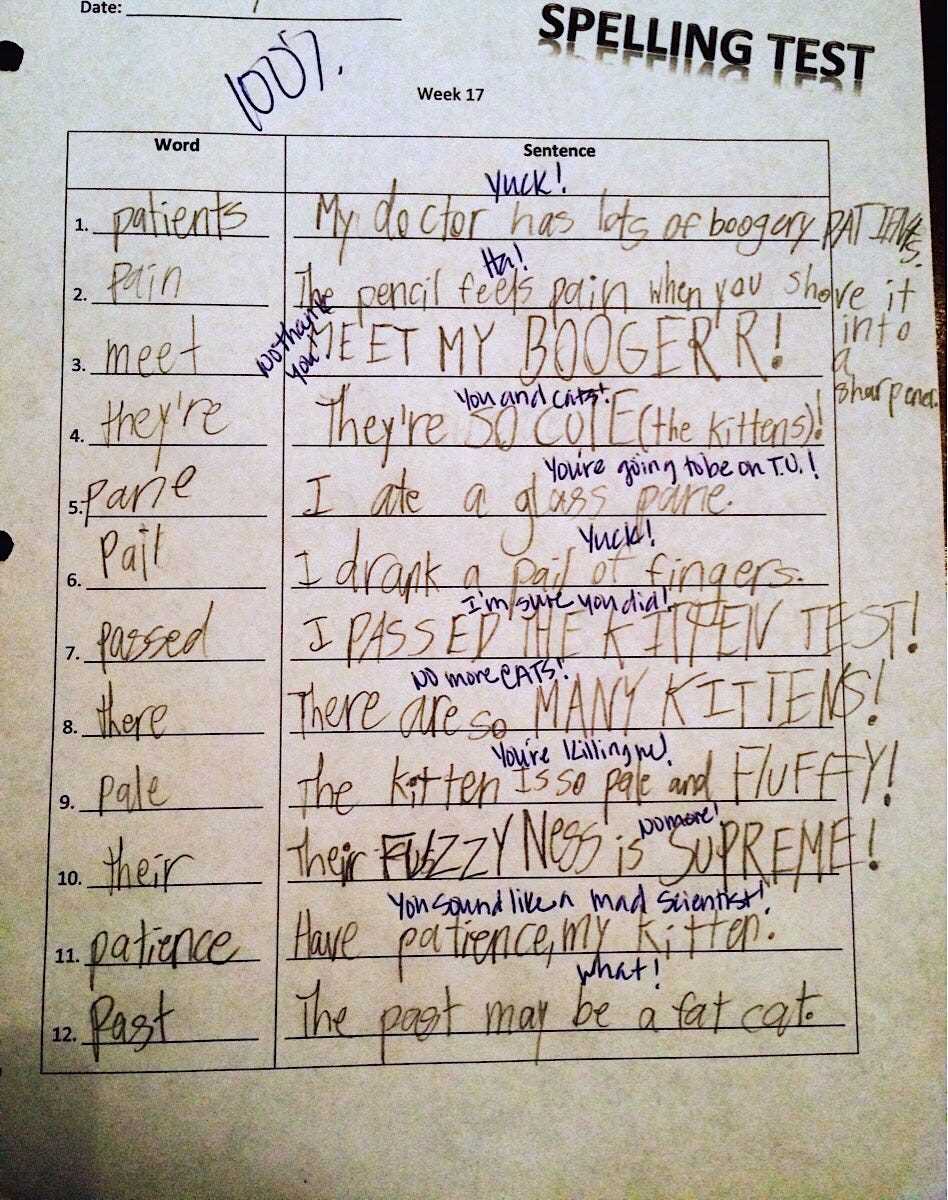 Date:
SPELLING TEST
100%.
Week 17
Word Sentence
Yuck!
1. patients My doctor has lots of boogery PATIENTS.
Ha!
2. Pain The pencil feels pain when you shove it into a sharpener.
No thank you!
3. meet MEET MY BOOGER'R!
You and cats!
4. they're They're SO CUTE (the kittens)!
You're going to be on T.V.!
5. pane I ate a glass pane.
Yuck!
6. Pail I drank a pail of fingers.
I'm sure you did!
7. passed I PASSED THE KITTEN TEST!
NO more CATS!
8. there There are so MANY KITTENS!
You're killing me!
9. pale The kitten Is so pale and FlUFFY!
No more!
10. their Their FUZZYNess is SUPREME!
You sound like a mad scientist!
11. patience Have patience, my kitten.
What!
12. Past The past may be a fat cat.